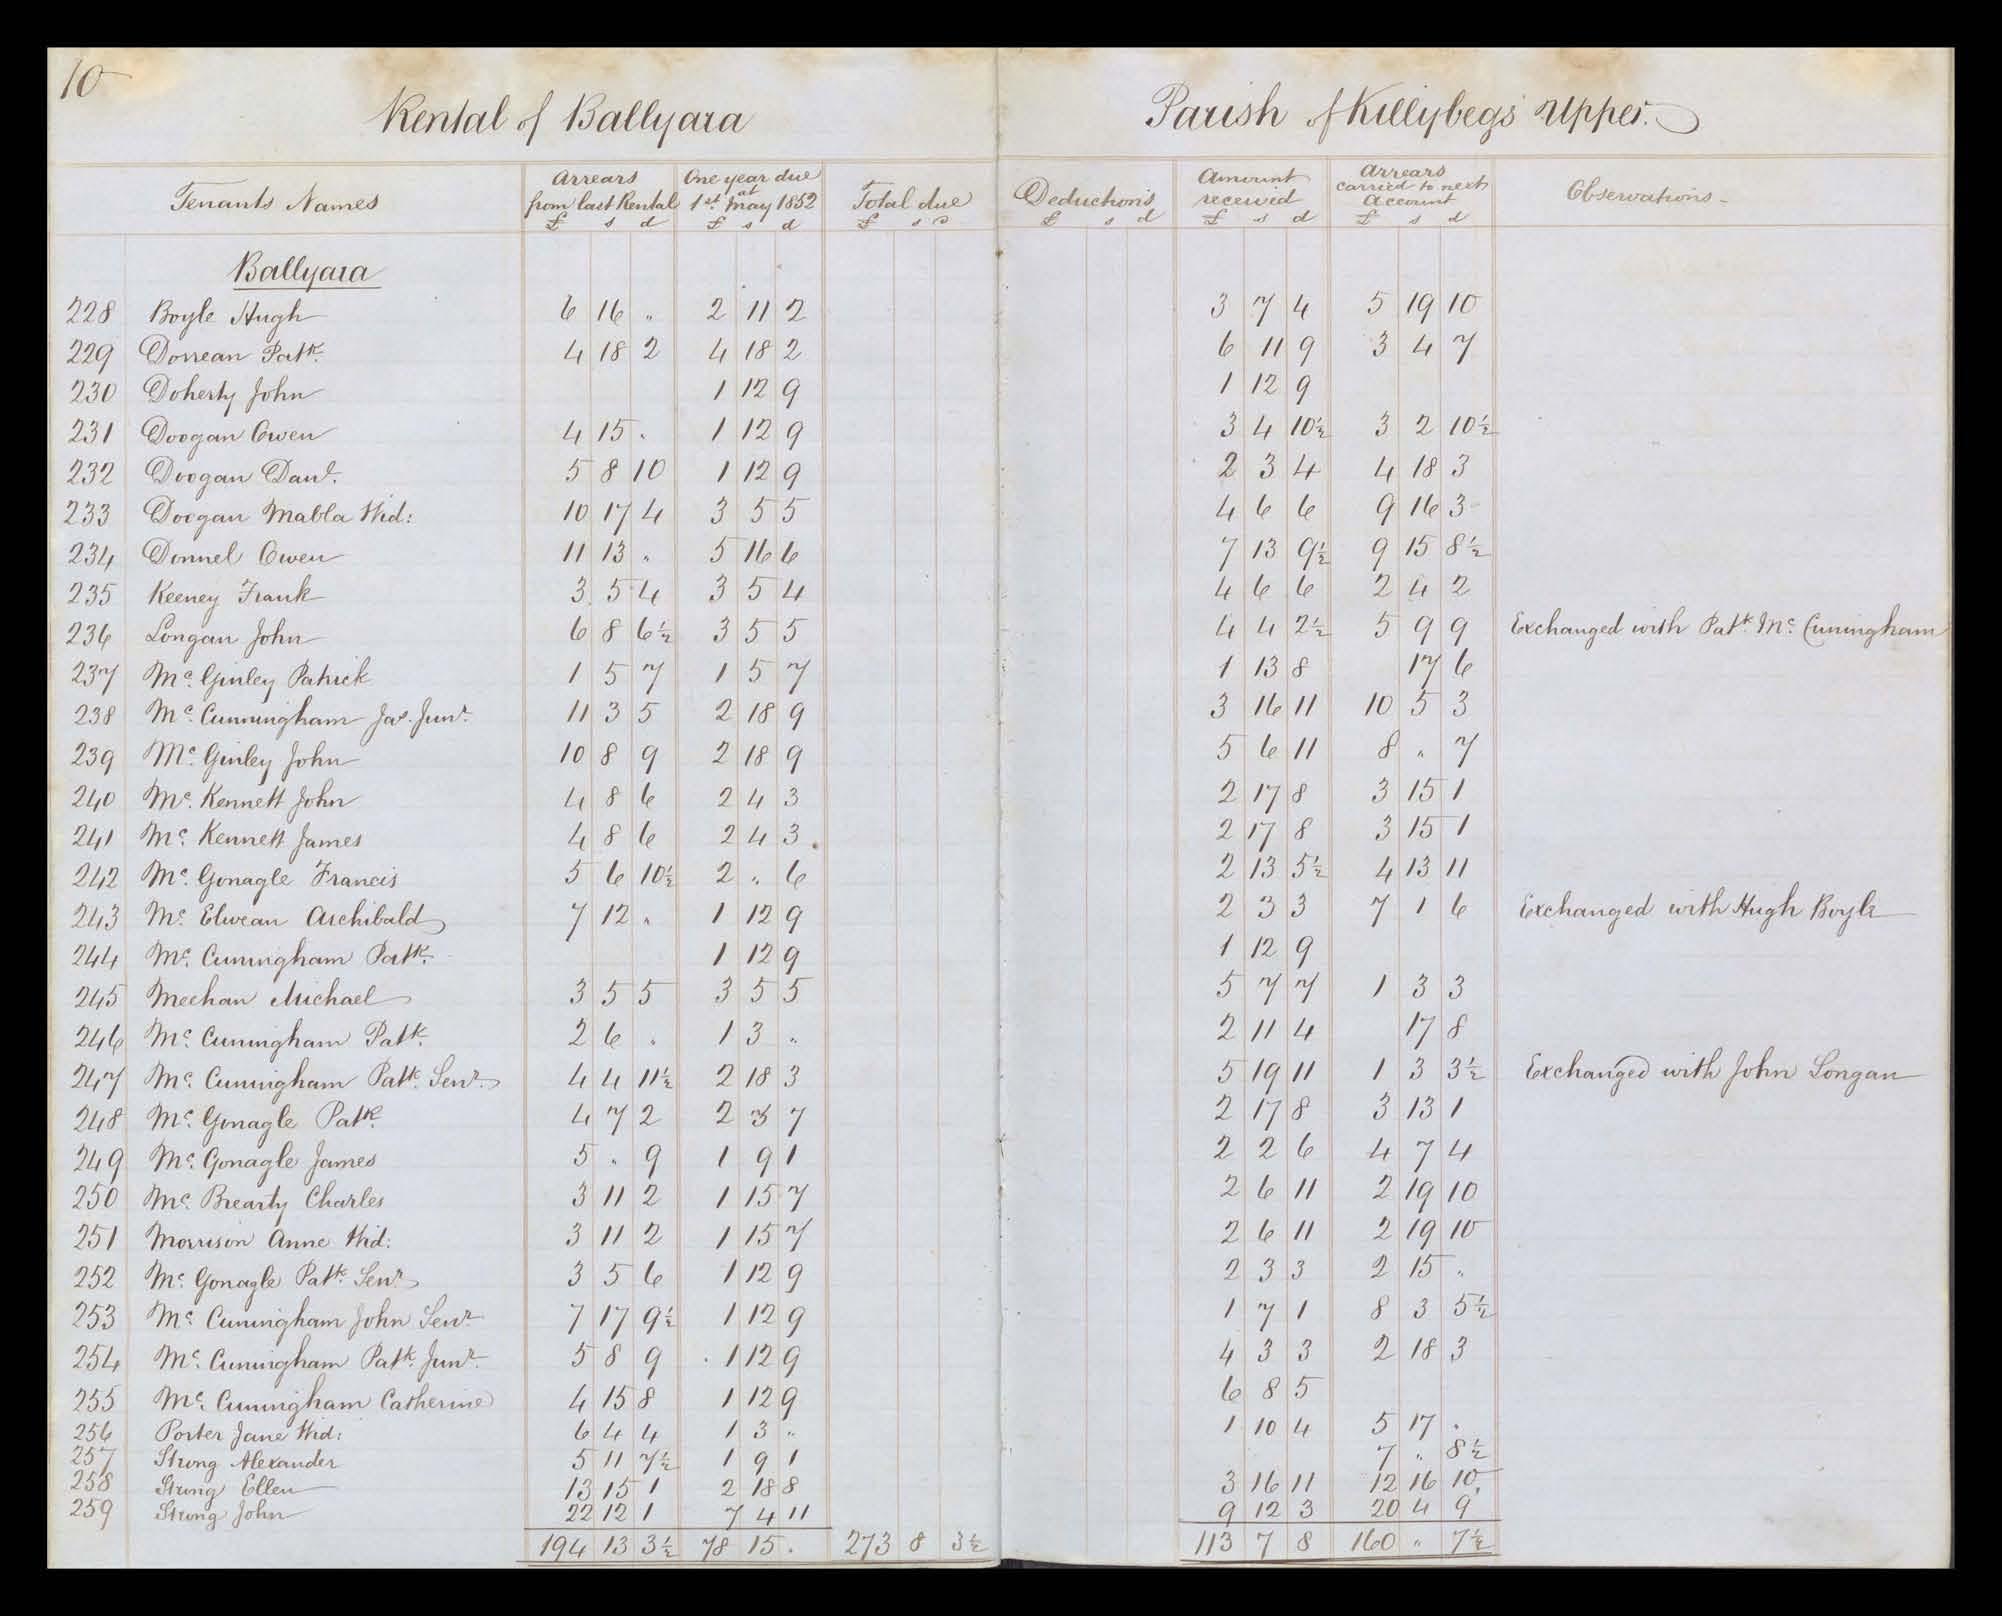 10
Rental of Ballyara Parish of Killybegs Upper.
Tenants Names Arrears from last Rental £ s d One year due at 1st. May 1852 £ s d Total due £ s d Deductions £ s d Amount received £ s d Arrears carried to next Account £ s d Observations
Ballyara
228 Boyle Hugh 6 16 " 2 11 2 3 7 4 5 19 10
229 Dorrean Patk. 4 18 2 4 18 2 6 11 9 3 4 7
230 Doherty John 1 12 9 1 12 9
231 Doogan Owen 4 15 " 1 12 9 3 4 10½ 3 2 10½
232 Doogan Danl. 5 8 10 1 12 9 2 3 4 4 18 3
233 Doogan Mabla Wid: 10 17 4 3 5 5 4 6 6 9 16 3
234 Donnel Owen 11 13 " 5 16 6 7 13 9½ 9 15 8½
235 Keeney Frank 3 5 4 3 5 4 4 6 6 2 4 2
236 Longan John 6 8 6½ 3 5 5 4 4 2½ 5 9 9 Exchanged with Patk. Mc. Cuningham
237 Mc. Ginley Patrick 1 5 7 1 5 7 1 13 8 17 6
238 Mc. Cunningham Jas. Junr. 11 3 5 2 18 9 3 16 11 10 5 3
239 Mc. Ginley John 10 8 9 2 18 9 5 6 11 8 " 7
240 Mc. Kennett John 4 8 6 2 4 3 2 17 8 3 15 1
241 Mc. Kennett James 4 8 6 2 4 3 2 17 8 3 15 1
242 Mc. Gonagle Francis 5 6 10½ 2 " 6 2 13 5½ 4 13 11
243 Mc. Elwean Archibald 7 12 " 1 12 9 2 3 3 7 1 6 Exchanged with Hugh Boyle
244 Mc. Cuningham Patk. 1 12 9 1 12 9
245 Meehan Michael 3 5 5 3 5 5 5 7 7 1 3 3
246 Mc. Cuningham Patk. 2 6 " 1 3 " 2 11 4 17 8
247 Mc. Cuningham Patk. Senr. 4 4 11½ 2 18 3 5 19 11 1 3 3½ Exchanged with John Longan
248 Mc. Gonagle Patk. 4 7 2 2 3 7 2 17 8 3 13 1
249 Mc. Gonagle James 5 " 9 1 9 1 2 2 6 4 7 4
250 Mc. Brearty Charles 3 11 2 1 15 7 2 6 11 2 19 10
251 Morrison Anne Wid: 3 11 2 1 15 7 2 6 11 2 19 10
252 Mc. Gonagle Patk. Senr. 3 5 6 1 12 9 2 3 3 2 15 "
253 Mc. Cuningham John Senr. 7 17 9½ 1 12 9 1 7 1 8 3 5½
254 Mc. Cuningham Patk. Junr. 5 8 9 1 12 9 4 3 3 2 18 3
255 Mc. Cuningham Catherine 4 15 8 1 12 9 6 8 5
256 Porter Jane Wid: 6 4 4 1 3 " 1 10 4 5 17 "
257 Strong Alexander 5 11 7½ 1 9 1 7 " 8½
258 Strong Ellen 13 15 1 2 18 8 3 16 11 12 16 10
259 Strong John 22 12 1 7 4 11 9 12 3 20 4 9
194 13 3½ 78 15 " 273 8 3½ 113 7 8 160 " 7½